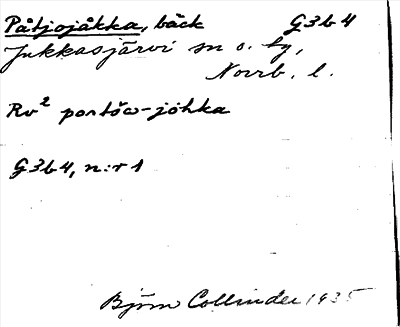 Påtjojåkka, bäck G3b4
Jukkasjärvi sn o. tg,
Norrb. l.
Rv² portöw-jóhka
G3b4, n:r 1
Björn Collinder 1935